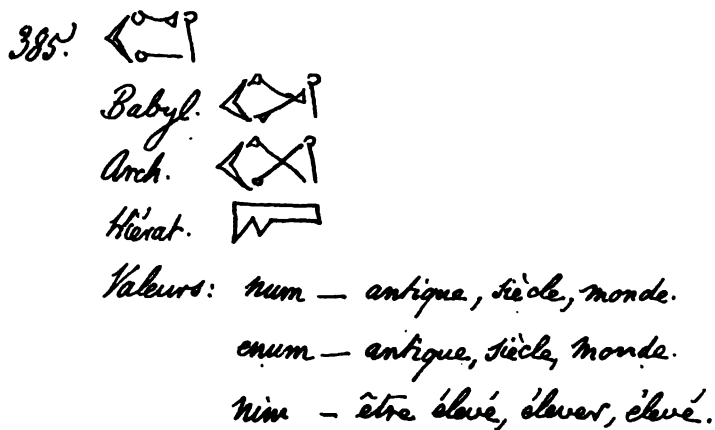 385.
Babyl.
Arch.
Hiérat.
Valeurs: num — antique, siècle, monde.
enum — antique, siècle, monde.
nim — être élevé, élever, élevé.